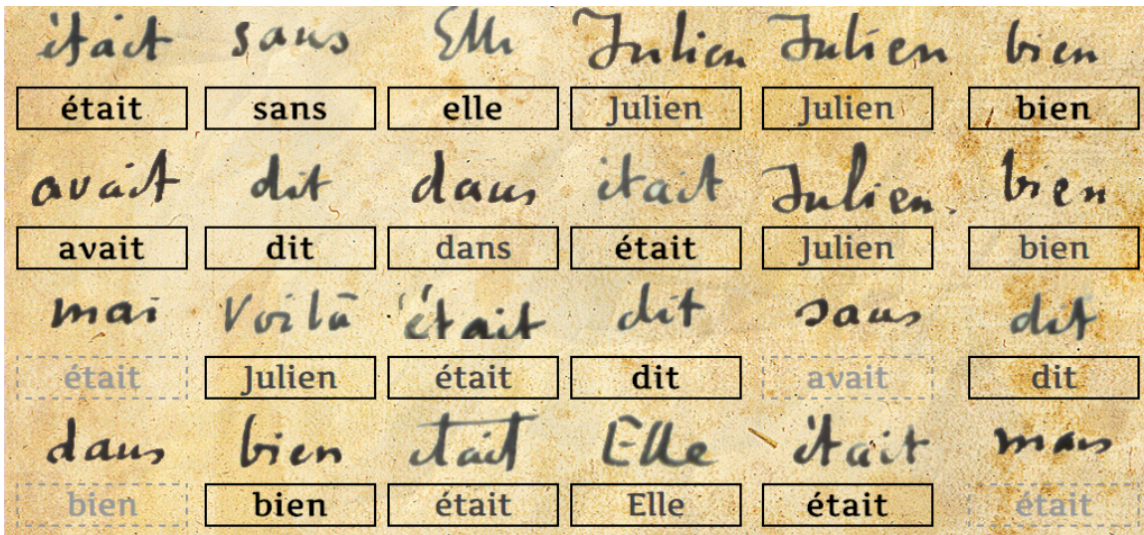 était sans Elle Julien Julien bien
était sans elle Julien Julien bien
avait dit dans était Julien. bien
avait dit dans était Julien bien
mai Voilà était dit sans dit
était Julien était dit avait dit
dans bien était Elle était mais
bien bien était Elle était était